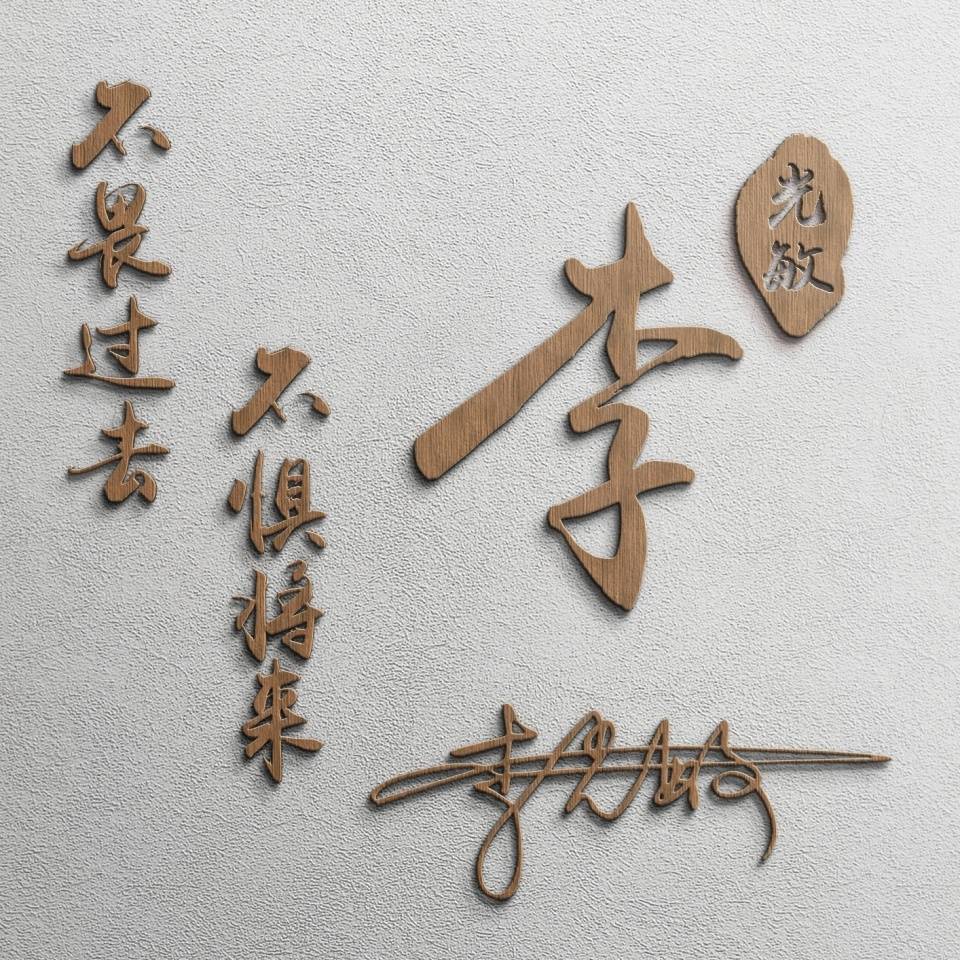 不畏过去
不惧将来
李
光敏
李光敏